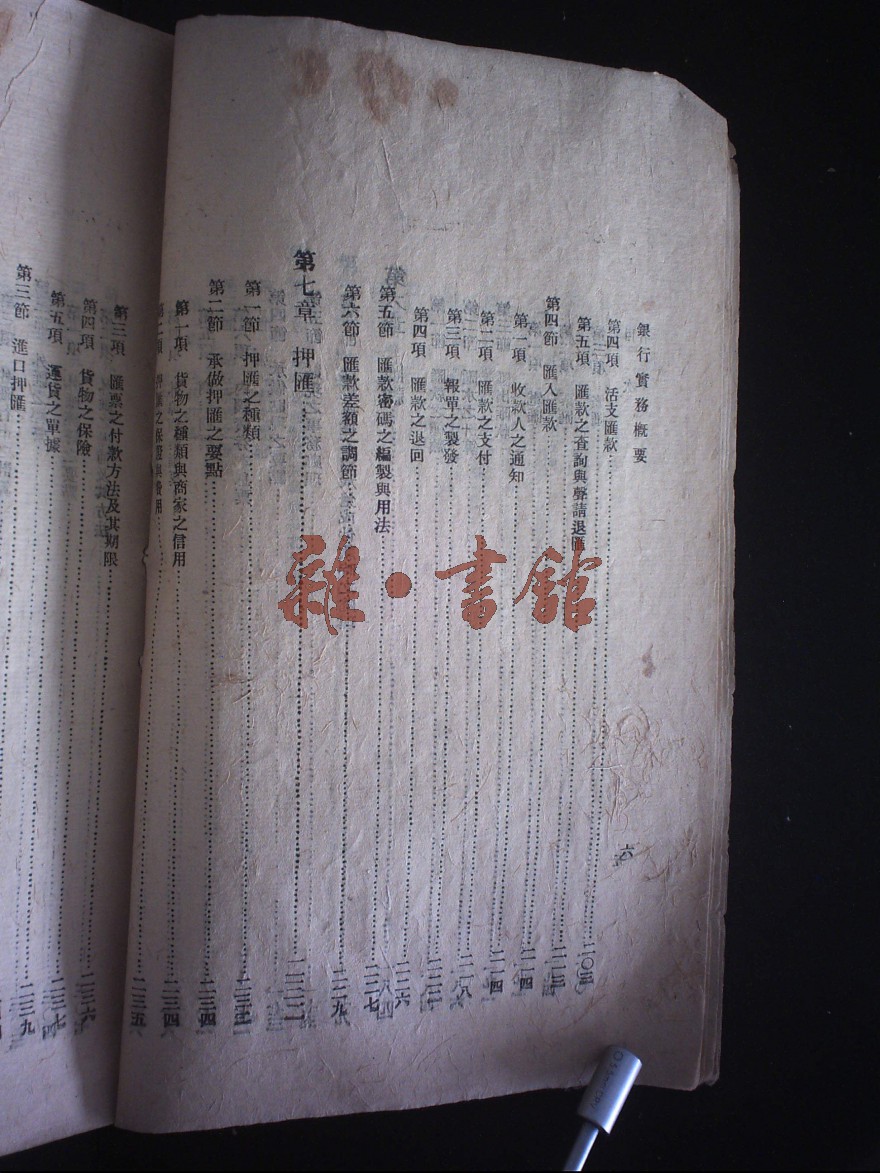 銀行實務概要
六
第四項 活支匯款……二〇三
第五項 匯款之查詢與聲請退匯……二一三
第四節 匯入匯款……二一四
第一項 收款人之通知……二一四
第二項 匯款之支付……二一八
第三項 報單之製發
第四項 匯款之退回……二二六
第五節 匯款密碼之編製與用法……二二七
第六節 匯款差額之調節……二二九
第七章 押匯
第一節 押匯之種類
第二節 承做押匯之要點……二三四
第一項 貨物之種類與商家之信用……二三四
第二項 押匯之保證與費用……二三五
第三項 匯票之付款方法及其期限
第四項 貨物之保險……二三六
第五項 運貨之單據……二三七
第三節 進口押匯……二三九
雜·書館